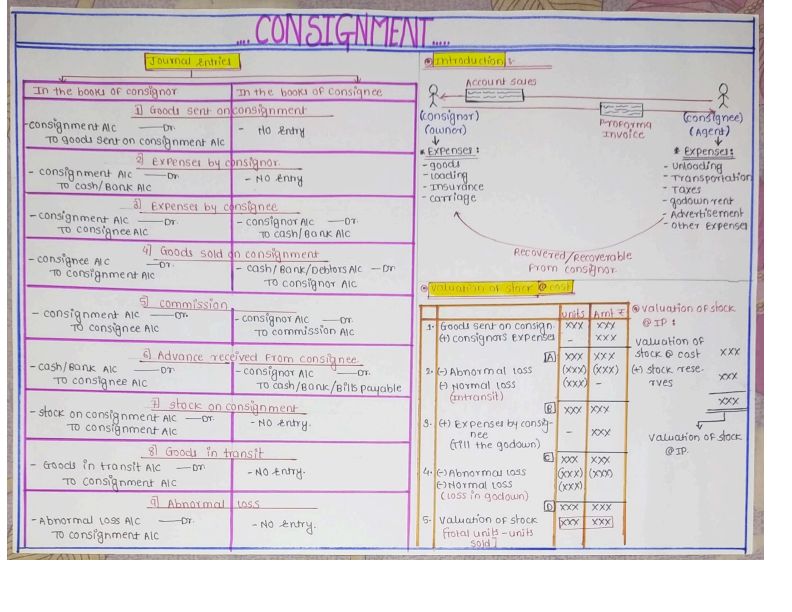 ....CONSIGNMENT.....
Journal entries
In the books of consignor
In the books of consignee
1) Goods sent on consignment
-consignment A/C —Dr.
To goods sent on consignment A/C
- No entry
2) Expenses by consignor
- consignment A/C —Dr.
To cash/Bank A/C
- No entry
3) Expenses by consignee
- consignment A/C —Dr.
To consignee A/C
- consignor A/C —Dr.
To cash/Bank A/C
4) Goods sold on consignment
consignee A/C —Dr.
To consignment A/C
- cash/Bank/Debtors A/C —Dr
To consignor A/C
5) commission
- consignment A/C —Dr.
To consignee A/C
-consignor A/C —Dr.
To commission A/C
6) Advance received from consignee
-cash/Bank A/C —Dr.
To consignee A/C
-consignor A/C —Dr.
To cash/Bank/Bills payable
7) stock on consignment
-stock on consignment A/C —Dr.
To consignment A/C
-No entry.
8) Goods in transit
- Goods in transit A/C —Dr.
To consignment A/C
-No entry.
9) Abnormal loss
-Abnormal loss A/C —Dr.
To consignment A/C
-No entry.
Introduction :-
Account sales
Proforma
Invoice
(consignor)
(owner)
(consignee)
(Agent)
* Expenses :
- goods
- loading
- Insurance
- carriage
* Expenses:
- Unloading
- Transportation
- Taxes
- godown rent
- Advertisement
- other Expenses
Recovered/recoverable
from consignor.
valuation of stock @ cost
units Amt ₹
1. Goods sent on consign. xxx xxx
(+) consignors Expenses - xxx
A xxx xxx
2. (-) Abnormal loss (xxx) (xxx)
(-) Normal loss (xxx) -
(Intransit)
B xxx xxx
3. (+) Expenses by consig-
nee - xxx
(Till the godown)
C xxx xxx
4. (-) Abnormal loss (xxx) (xxx)
(-) Normal loss (xxx)
(Loss in godown)
D xxx xxx
5. Valuation of stock xxx xxx
[Total units - units
sold]
valuation of stock
@ IP :
valuation of
stock @ cost xxx
(+) stock rese-
rves xxx
xxx
valuation of stock
@ IP.